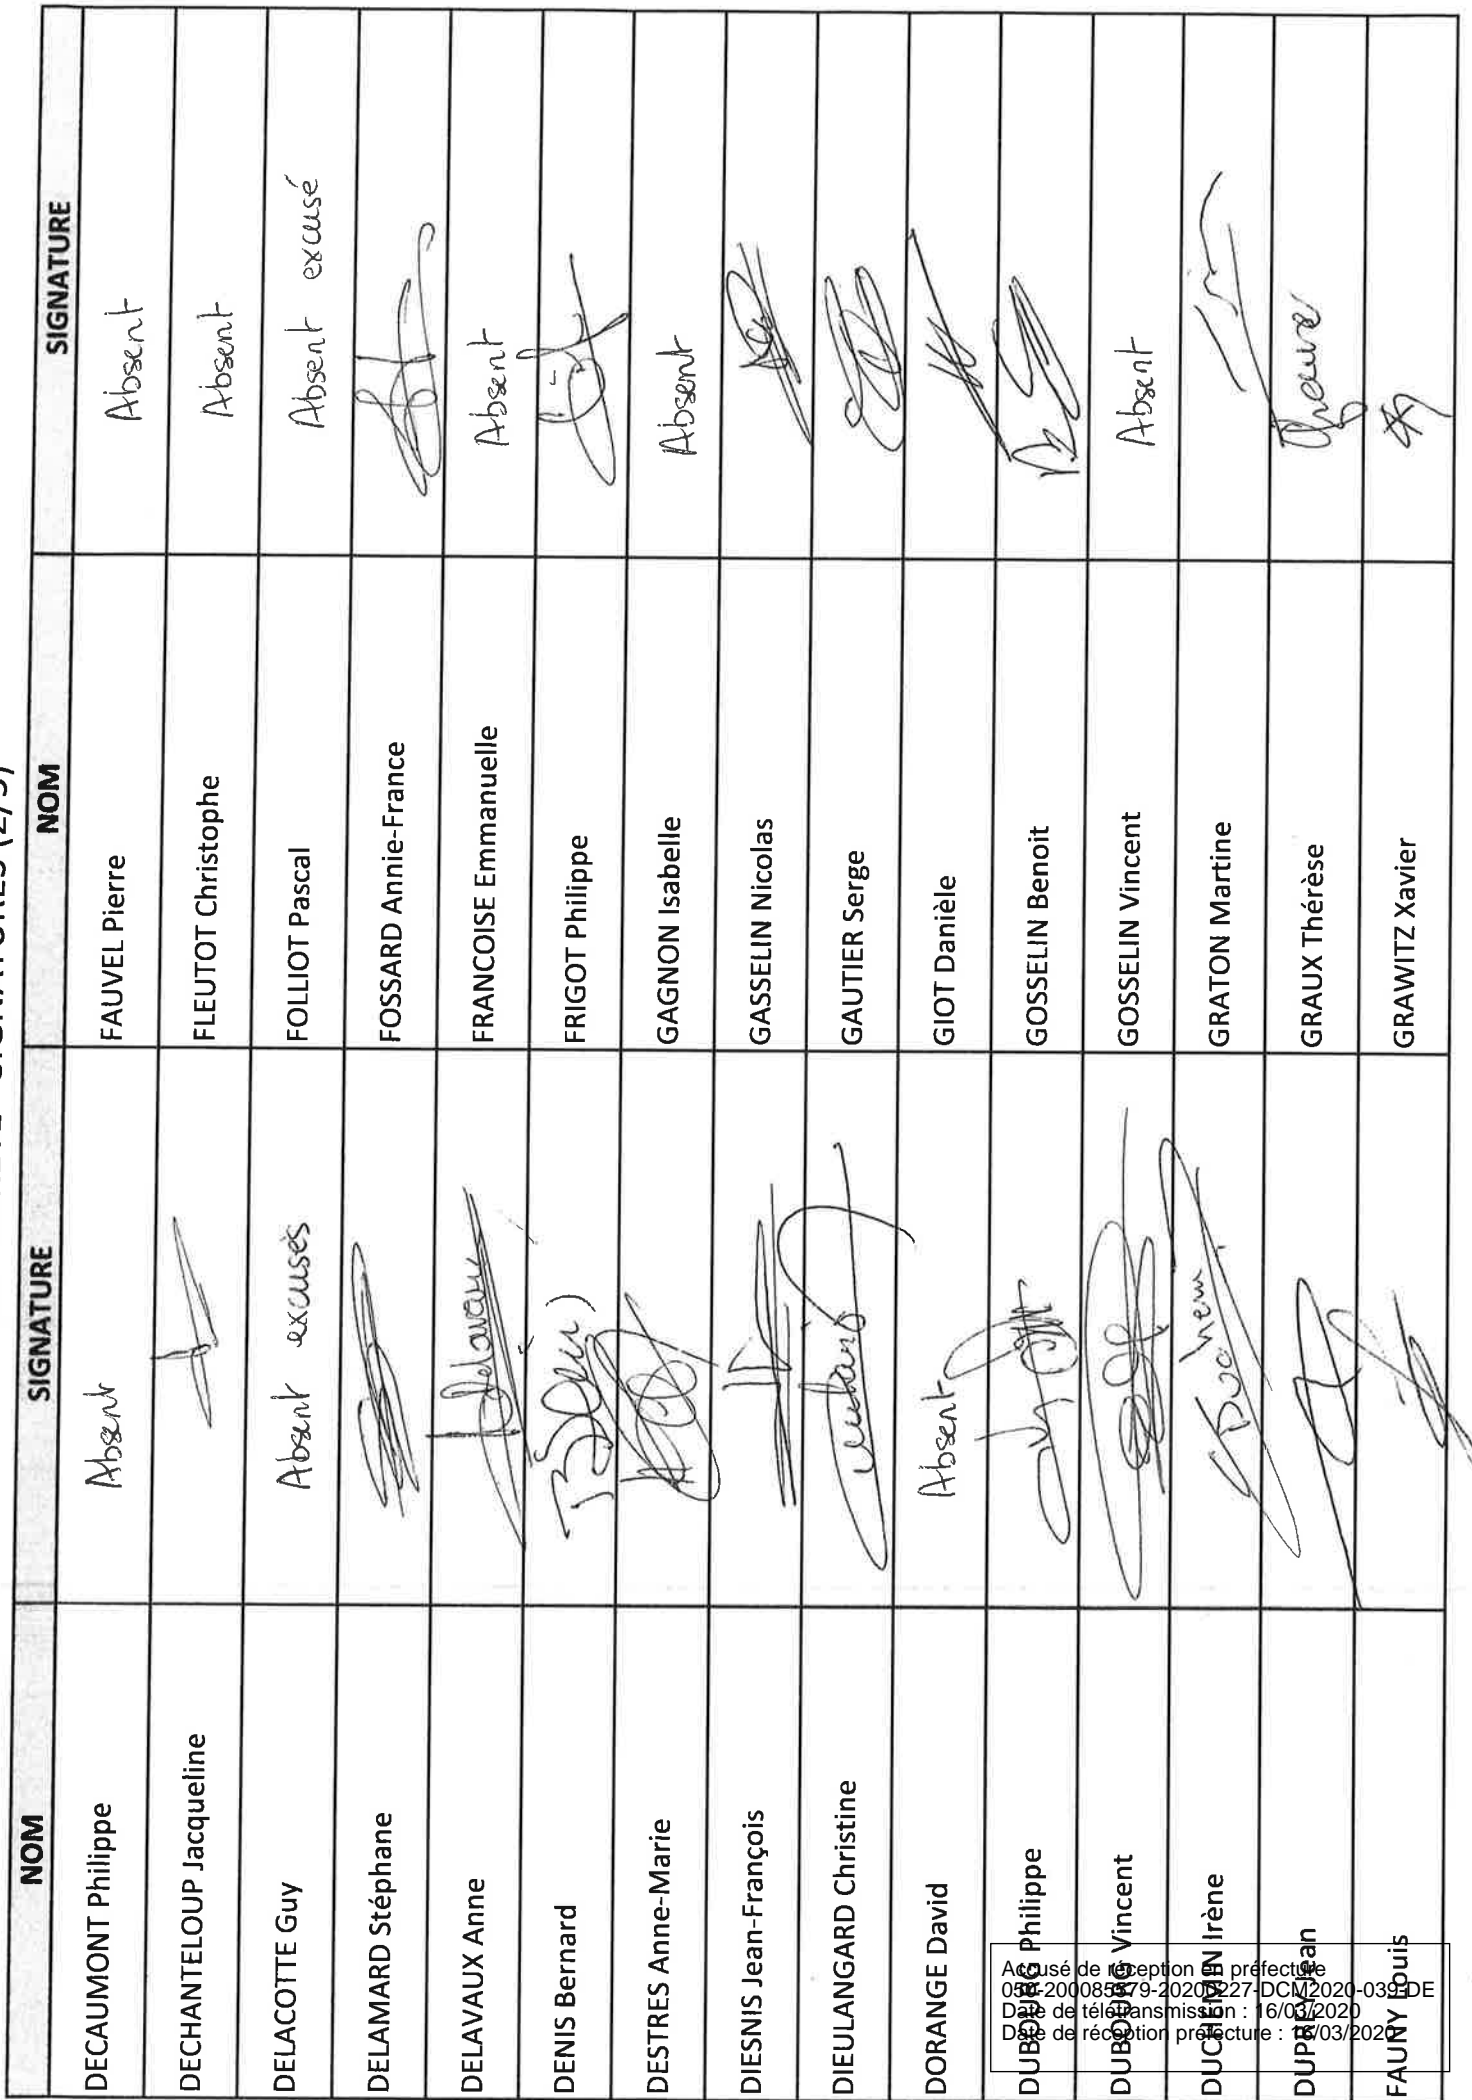 SIGNATURES (2/5)
NOM SIGNATURE NOM SIGNATURE
DECAUMONT Philippe Absent FAUVEL Pierre Absent
DECHANTELOUP Jacqueline FLEUTOT Christophe Absent
DELACOTTE Guy Absent excusés FOLLIOT Pascal Absent excusé
DELAMARD Stéphane FOSSARD Annie-France
DELAVAUX Anne Delavaux FRANCOISE Emmanuelle Absent
DENIS Bernard FRIGOT Philippe
DESTRES Anne-Marie GAGNON Isabelle Absent
DIESNIS Jean-François GASSELIN Nicolas
DIEULANGARD Christine GAUTIER Serge
DORANGE David Absent GIOT Danièle
DUBOURG Philippe GOSSELIN Benoit
DUBOURG Vincent GOSSELIN Vincent Absent
DUCHEMIN Irène GRATON Martine
DUPREY Jean GRAUX Thérèse
FAUNY Louis GRAWITZ Xavier
Accusé de réception en préfecture
050-200085579-20200227-DCM2020-039-DE
Date de télétransmission : 16/03/2020
Date de réception préfecture : 16/03/2020